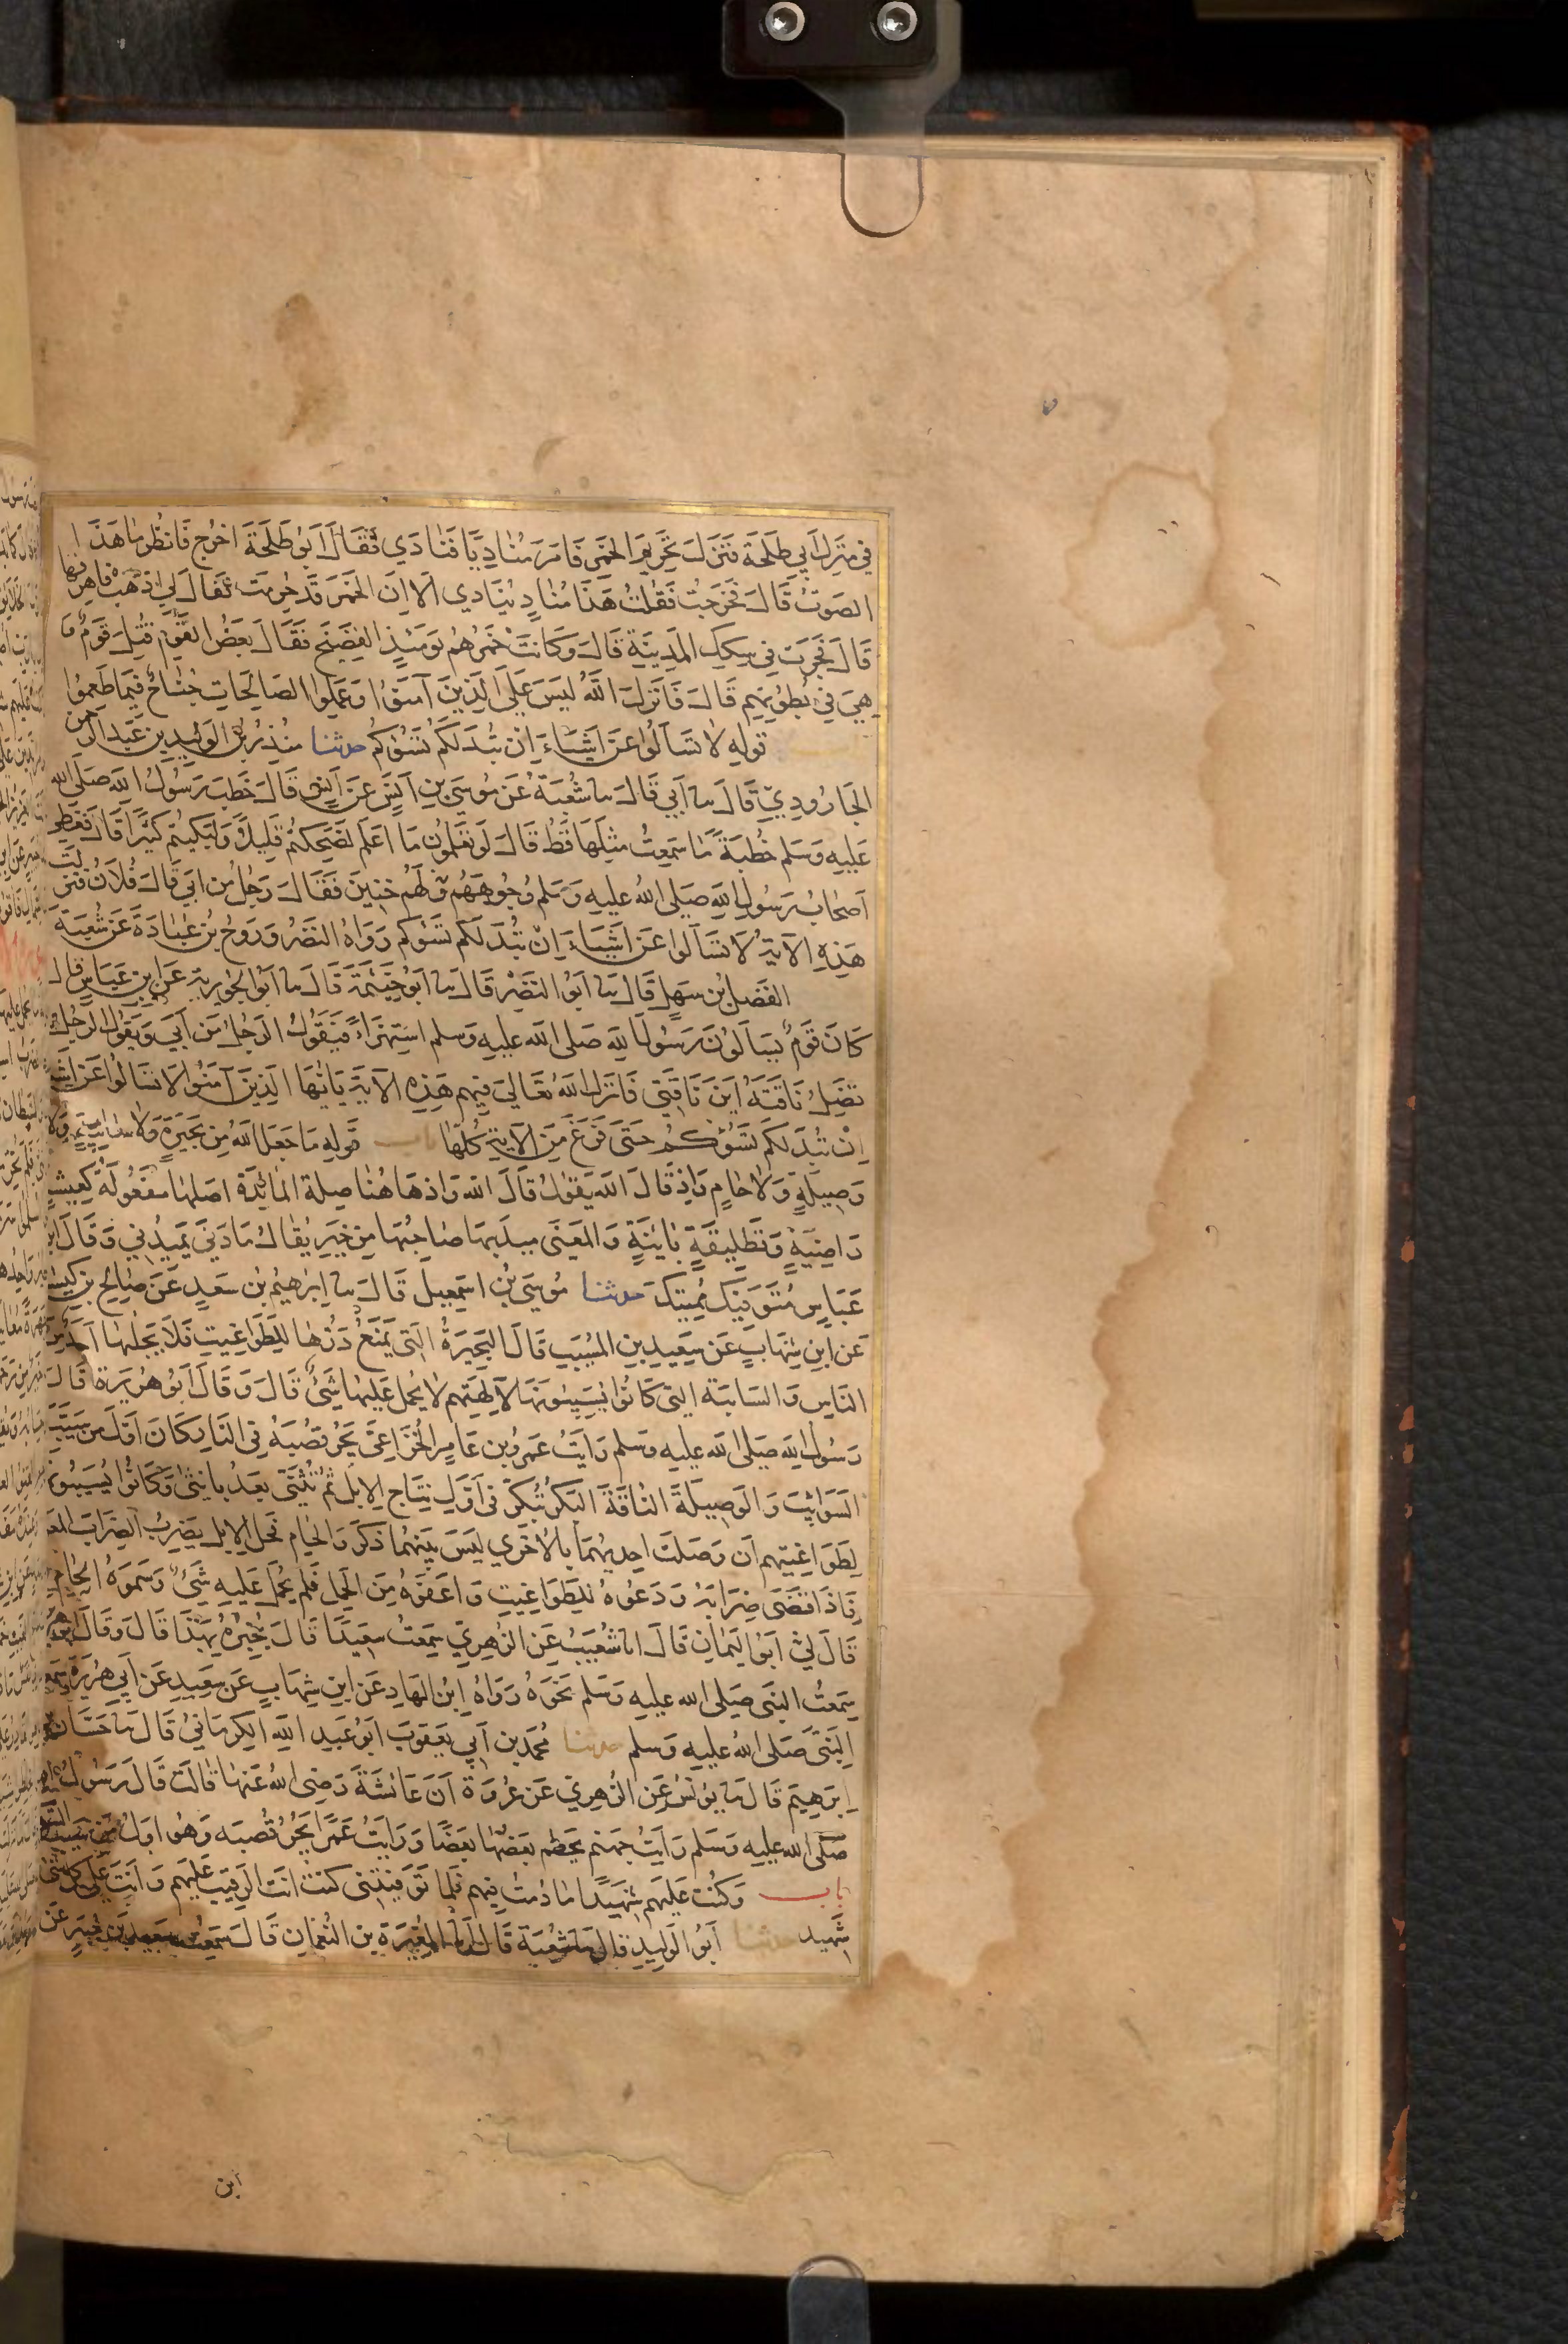 في منزل أبي طلحة فنزل تحريم الخمر فامر مناديا فنادي فقال ابو طلحة اخرج فانظر ما هذا
الصوت قال فخرجت فقلت هذا مناد ينادي الا ان الخمر قد حرمت فقال لي اذهب فاهرقها
قال فجرت في سكك المدينة قال وكانت خمرهم يومئذ الفضيخ فقال بعض القوم قتل قوم و
هي في بطونهم قال فانزل الله ليس على الذين آمنوا وعملوا الصالحات جناح فيما طعموا
قوله لا تسألوا عن اشياء ان تبد لكم تسؤكم حدثنا منذر بن الوليد بن عبد الرحمن
الجارودي قال نا أبي قال نا شعبة عن موسى بن انس عن انس قال خطب رسول الله صلى الله
عليه وسلم خطبة ما سمعت مثلها قط قال لو تعلمون ما اعلم لضحكتم قليلا ولبكيتم كثيرا قال فغطى
أصحاب رسول الله صلى الله عليه وسلم وجوههم لهم خنين فقال رجل من ابي قال فلان فنزلت
هذه الآية لا تسألوا عن اشياء ان تبد لكم تسؤكم رواه النضر وروح بن عبادة عن شعبة
الفضل بن سهل قال نا ابو النضر قال نا ابو خيثمة قال نا ابو الجويرية عن ابن عباس قال
كان قوم يسألون رسول الله صلى الله عليه وسلم استهزاء فيقول الرجل من أبي ويقول الرجل
تضل ناقته اين ناقتي فانزل الله تعالى فيهم هذه الآية يا ايها الذين آمنوا لا تسألوا عن اشياء
ان تبد لكم تسؤكم حتى فرغ من الآية كلها باب قوله ما جعل الله من بحيرة ولا سائبة ولا
وصيلة ولا حام واذ قال الله يقول قال الله واذ هاهنا صلة المائدة اصلها مفعولة كعيشة
راضية وتطليقة بائنة والمعنى ميد بها صاحبها من خير يقال مادني يميدني وقال ابن
عباس متوفيك مميتك حدثنا موسى بن اسمعيل قال نا ابرهيم بن سعد عن صالح بن كيسان
عن ابن شهاب عن سعيد بن المسيب قال البحيرة التي يمنع درها للطواغيت فلا يحلبها احد من
الناس والسائبة التي كانوا يسيبونها لآلهتهم لا يحمل عليها شئ قال وقال أبو هريرة قال
رسول الله صلى الله عليه وسلم رأيت عمرو بن عامر الخزاعي يجر قصبه في النار كان أول من سيب
السوائب والوصيلة الناقة البكر تبكر في أول نتاج الابل ثم تثني بعد بانثى وكانوا يسيبونها
لطواغيتهم ان وصلت احديهما بالاخرى ليس بينهما ذكر والحام فحل الابل يضرب الضراب المعدود
فاذا قضى ضرابه ودعوه للطواغيت واعفوه من الحمل فلم يحمل عليه شئ وسموه الحام
قال لي ابو اليمان قال انا شعيب عن الزهري سمعت سعيدا قال يخبره بهذا قال وقال أبو هريرة
سمعت النبي صلى الله عليه وسلم نحوه ورواه ابن الهاد عن ابن شهاب عن سعيد عن أبي هريرة سمعت
النبي صلى الله عليه وسلم حدثنا محمد بن أبي يعقوب ابو عبد الله الكرماني قال نا حسان بن
ابرهيم قال نا يونس عن الزهري عن عروة أن عائشة رضي الله عنها قالت قال رسول الله
صلى الله عليه وسلم رأيت جهنم يحطم بعضها بعضا ورأيت عمرا يجر قصبه وهو اول من سيب السوائب
باب وكنت عليهم شهيدا ما دمت فيهم فلما توفيتني كنت انت الرقيب عليهم وانت على كل شئ
شهيد حدثنا أبو الوليد قال نا شعبة قال أنا المغيرة بن النعمان قال سمعت سعيد بن جبير عن
ابن